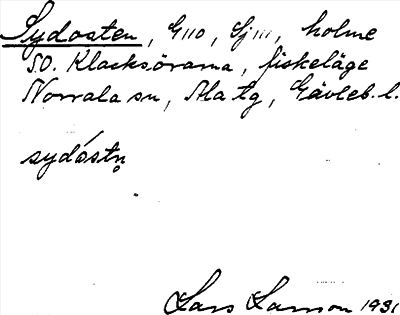 Sydosten, G110, Sj111, holme
S.O. Klacksörarna, fiskeläge
Norrala sn, Ala tg, Gävleb. l.
sydóstn̥
Lars Larsson 1931